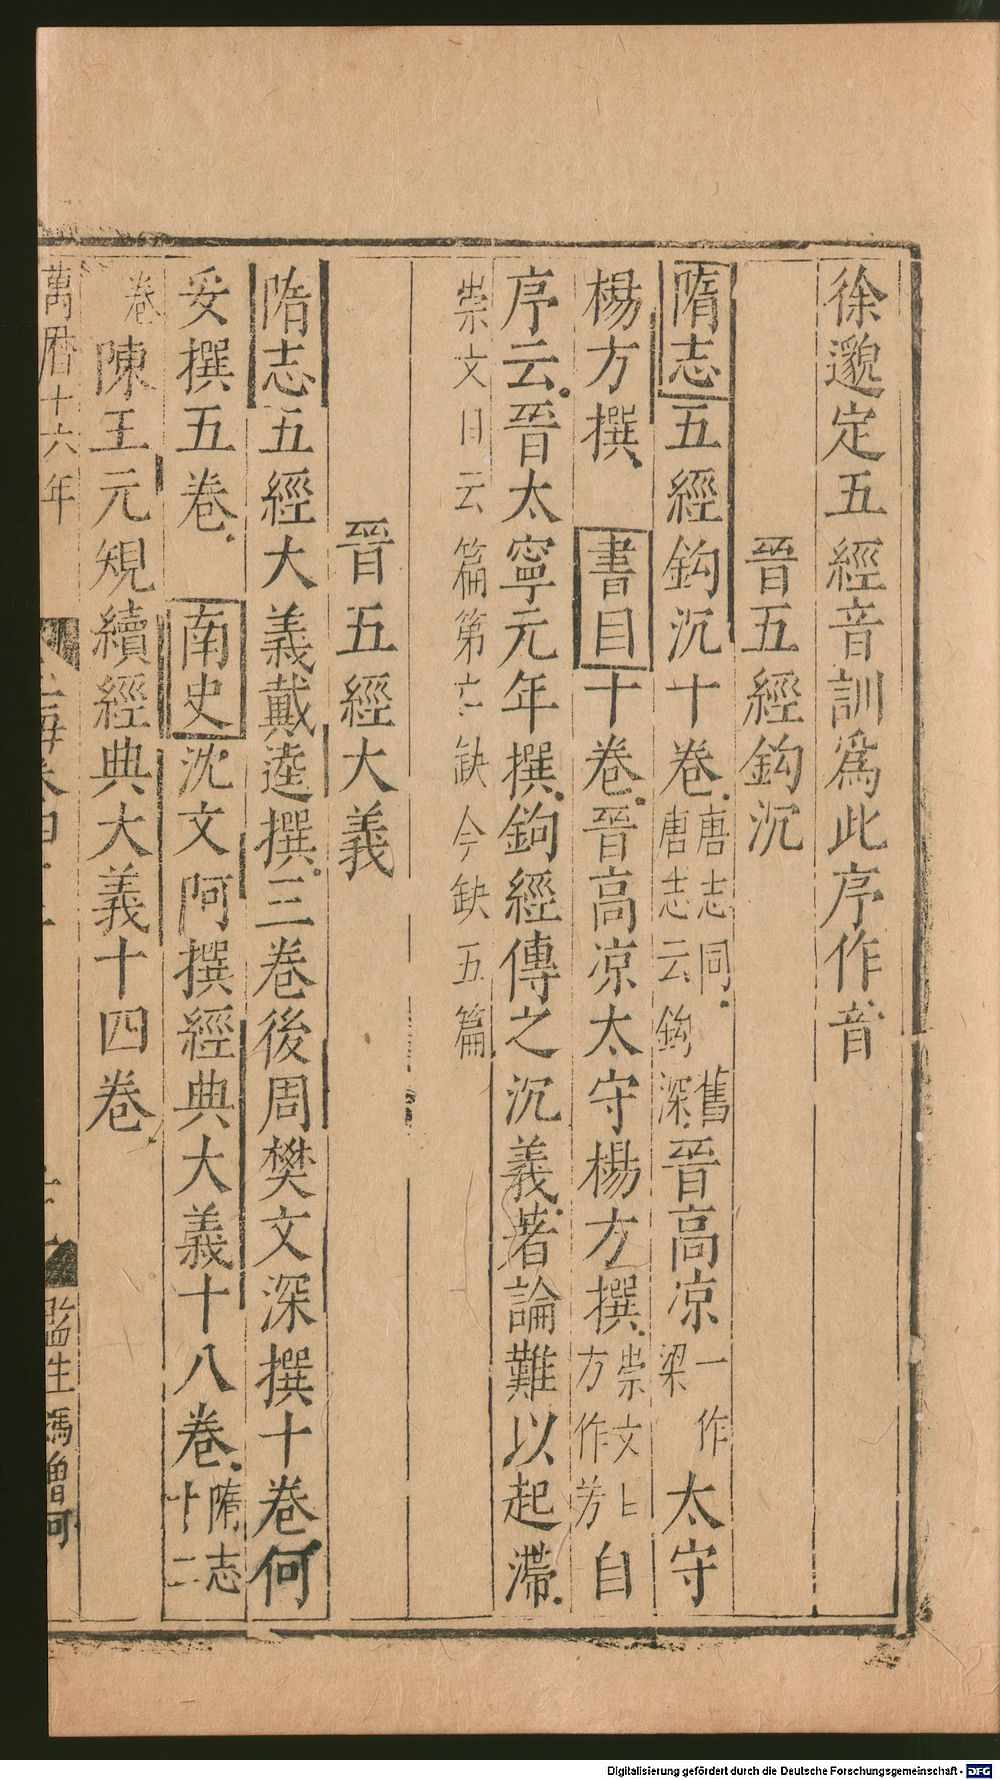 徐邈定五經音訓爲此序作音
晉五經鈎沉
隋志五經鈎沉十卷唐志同唐志云鈎深舊晉高涼一作梁太守
楊方撰書目十卷晉高凉太守楊方撰崇文目方作芳自
序云晉太寧元年撰鉤經傳之沉義著論難以起滯
崇文目云篇第亡缺今缺五篇
晉五經大義
隋志五經大義戴逵撰三卷後周樊文深撰十卷何
妥撰五卷南史沈文阿撰經典大義十八卷隋志十二
卷陳王元規續經典大義十四卷
萬曆十六年
監生馮曾可
Digitalisierung gefördert durch die Deutsche Forschungsgemeinschaft - DFG